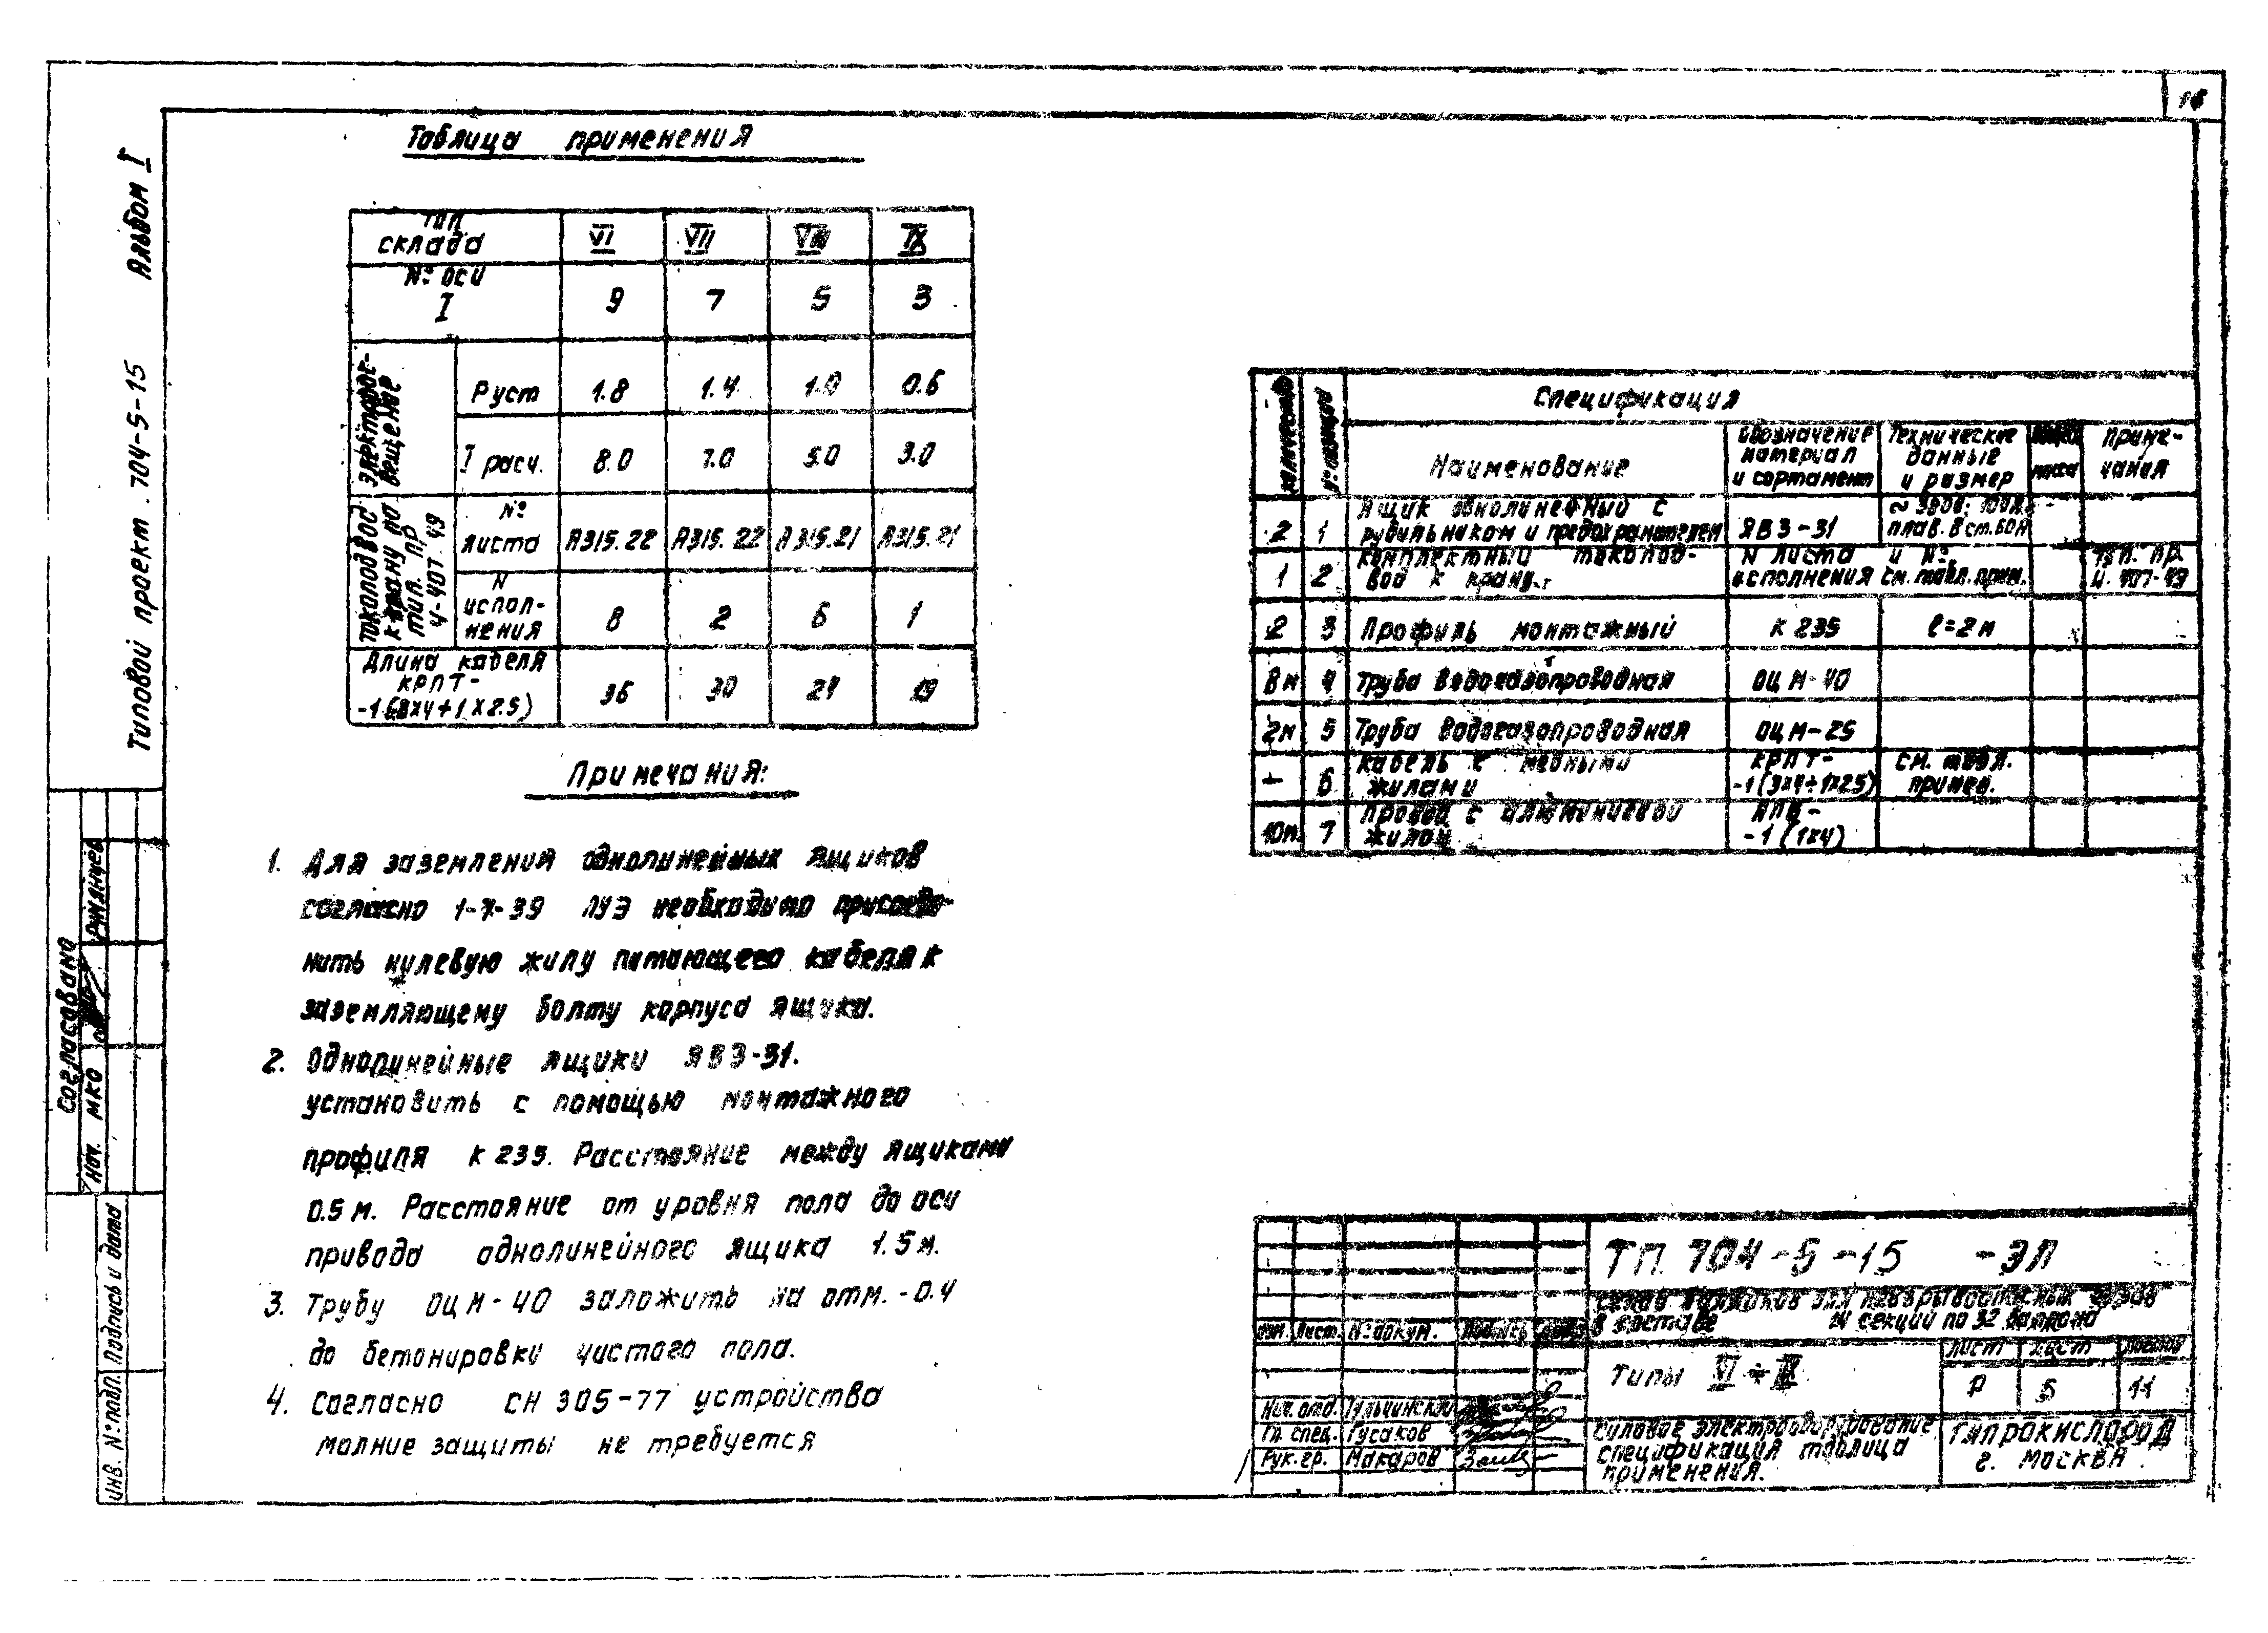 16
Альбом I
Типовой проект. 704-5-15
Таблица применения
Тип склада VI VII VIII IX
№ оси I 9 7 5 3
Электроосвещение
Р уст 1.8 1.4 1.0 0.6
I расч. 8.0 7.0 5.0 3.0
Токоподвос к крану по тип. пр 4-407-49
№ листа А315.22 А315.22 А315.21 А315.21
N исполнения 8 2 6 1
Длина кабеля КРПТ-
-1(3х4+1х2.5) 36 30 24 19
Примечания:
1. Для заземления однолинейных ящиков
согласно 1-7-39 ПУЭ необходимо присоеди-
нить нулевую жилу питающего кабеля к
заземляющему болту корпуса ящика.
2. Однолинейные ящики ЯВЗ-31.
установить с помощью монтажного
профиля К 235. Расстояние между ящиками
0.5 м. Расстояние от уровня пола до оси
привода однолинейного ящика 1.5 м.
3. Трубу ОЦ М-40 заложить на отм. -0.4
до бетонировки чистого пола.
4. Согласно СН 305-77 устройства
молние защиты не требуется
Спецификация
Количество № позиции Наименование Обозначение материал и сортамент Технические данные и размер масса Приме-чания
2 1 Ящик однолинейный с рубильником и предохранителем ЯВЗ-31 ~380В; 100А; плав. вст. 60А
1 2 Комплектный токопод-вод к крану. N листа и № исполнения см. табл. прим. тип. пр. 4.407-49
2 3 Профиль монтажный К 235 ℓ=2м
8м 4 Труба водогазопроводная ОЦ М-40
2м 5 Труба водогазопроводная ОЦ М-25
— 6 Кабель с медными жилами КРПТ--1(3х4+1х2.5) см. табл. примен.
10м. 7 Провод с алюминиевой жилой АПВ--1(1х4)
ТП. 704-5-15 -ЭЛ
Склад баллонов для невзрывоопасных газов
в составе 14 секций по 32 баллона
Изм. Лист. № докум. Подпись Дата
Типы VI ÷ IX
Лист Лист Листов
Р 5 11
Нач. отд. Гульчинский
Гл. спец. Гусаков
Рук. гр. Макаров
Силовое электрооборудование
спецификация таблица
применения.
Гипрокислород
г. Москва.
Согласовано
Нач. МКО
Инв. № подл. Подпись и дата